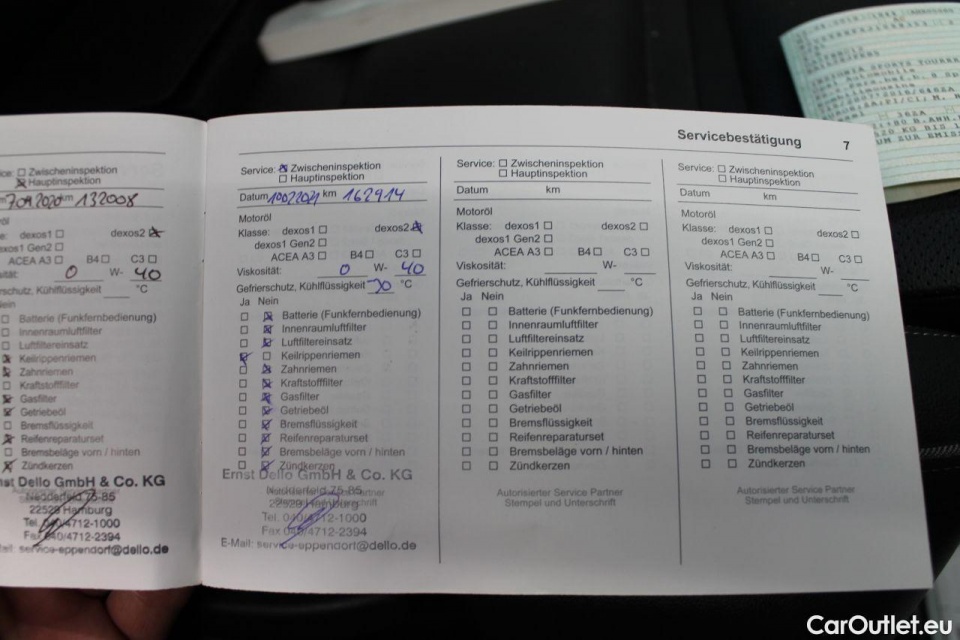 Servicebestätigung 7
Zwischeninspektion
Hauptinspektion
132008
dexos1
dexos2
dexos1 Gen2
ACEA A3 B4 C3
0 W- 40
°C
Batterie (Funkfernbedienung)
Innenraumluftfilter
Luftfiltereinsatz
Keilrippenriemen
Zahnriemen
Kraftstofffilter
Gasfilter
Getriebeöl
Bremsflüssigkeit
Reifenreparaturset
Bremsbeläge vorn / hinten
Zündkerzen
Dello GmbH & Co. KG
Nedderfeld 75-85
22529 Hamburg
Tel. 040/4712-1000
Fax 040/4712-2394
service-eppendorf@dello.de
Service: Zwischeninspektion
Hauptinspektion
Datum 10022021 km 162914
Motoröl
Klasse: dexos1 dexos2
dexos1 Gen2
ACEA A3 B4 C3
Viskosität: 0 W- 40
Gefrierschutz, Kühlflüssigkeit °C
Ja Nein
Batterie (Funkfernbedienung)
Innenraumluftfilter
Luftfiltereinsatz
Keilrippenriemen
Zahnriemen
Kraftstofffilter
Gasfilter
Getriebeöl
Bremsflüssigkeit
Reifenreparaturset
Bremsbeläge vorn / hinten
Zündkerzen
Ernst Dello GmbH & Co. KG
Nedderfeld 75-85
22529 Hamburg
Tel. 040/4712-1000
Fax 040/4712-2394
E-Mail: service-eppendorf@dello.de
Service: Zwischeninspektion
Hauptinspektion
Datum km
Motoröl
Klasse: dexos1 dexos2
dexos1 Gen2
ACEA A3 B4 C3
Viskosität: W-
Gefrierschutz, Kühlflüssigkeit °C
Ja Nein
Batterie (Funkfernbedienung)
Innenraumluftfilter
Luftfiltereinsatz
Keilrippenriemen
Zahnriemen
Kraftstofffilter
Gasfilter
Getriebeöl
Bremsflüssigkeit
Reifenreparaturset
Bremsbeläge vorn / hinten
Zündkerzen
Autorisierter Service Partner
Stempel und Unterschrift
Service: Zwischeninspektion
Hauptinspektion
Datum km
Motoröl
Klasse: dexos1 dexos2
dexos1 Gen2
ACEA A3 B4 C3
Viskosität: W-
Gefrierschutz, Kühlflüssigkeit °C
Ja Nein
Batterie (Funkfernbedienung)
Innenraumluftfilter
Luftfiltereinsatz
Keilrippenriemen
Zahnriemen
Kraftstofffilter
Gasfilter
Getriebeöl
Bremsflüssigkeit
Reifenreparaturset
Bremsbeläge vorn / hinten
Zündkerzen
Autorisierter Service Partner
Stempel und Unterschrift
CarOutlet.eu